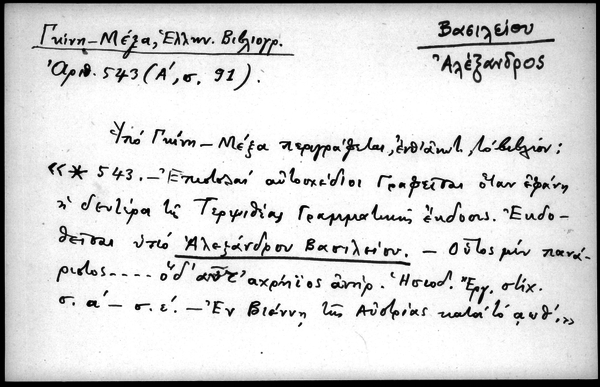 Γκίνη – Μέξα, Ἑλλην. Βιβλιογρ.
Ἀριθ. 543 (Α΄, σ. 91).
Βασιλείου
Ἀλέξανδρος
Ὑπὸ Γκίνη – Μέξα περιγράφεται, ἐνθ' ἀνωτ., τὸ βιβλίον:
«* 543. – Ἐπιστολαὶ αὐτοσχέδιοι Γραφεῖσαι ὅταν ἐφάνη
ἡ δευτέρα τῆς Τερψιθέας Γραμματικῆς ἔκδοσις. Ἐκδο-
θεῖσαι ὑπὸ Ἀλεξάνδρου Βασιλείου. – Οὗτος μὲν πανά-
ριστος ---- ὁ δ' αὖτ' ἀχρήϊος ἀνήρ. Ἡσιοδ. Ἔργ. στίχ.
σ. α΄ – σ. ε΄. – Ἐν Βιέννῃ τῆς Αὐστρίας κατὰ τὸ ͵αωθ΄.»